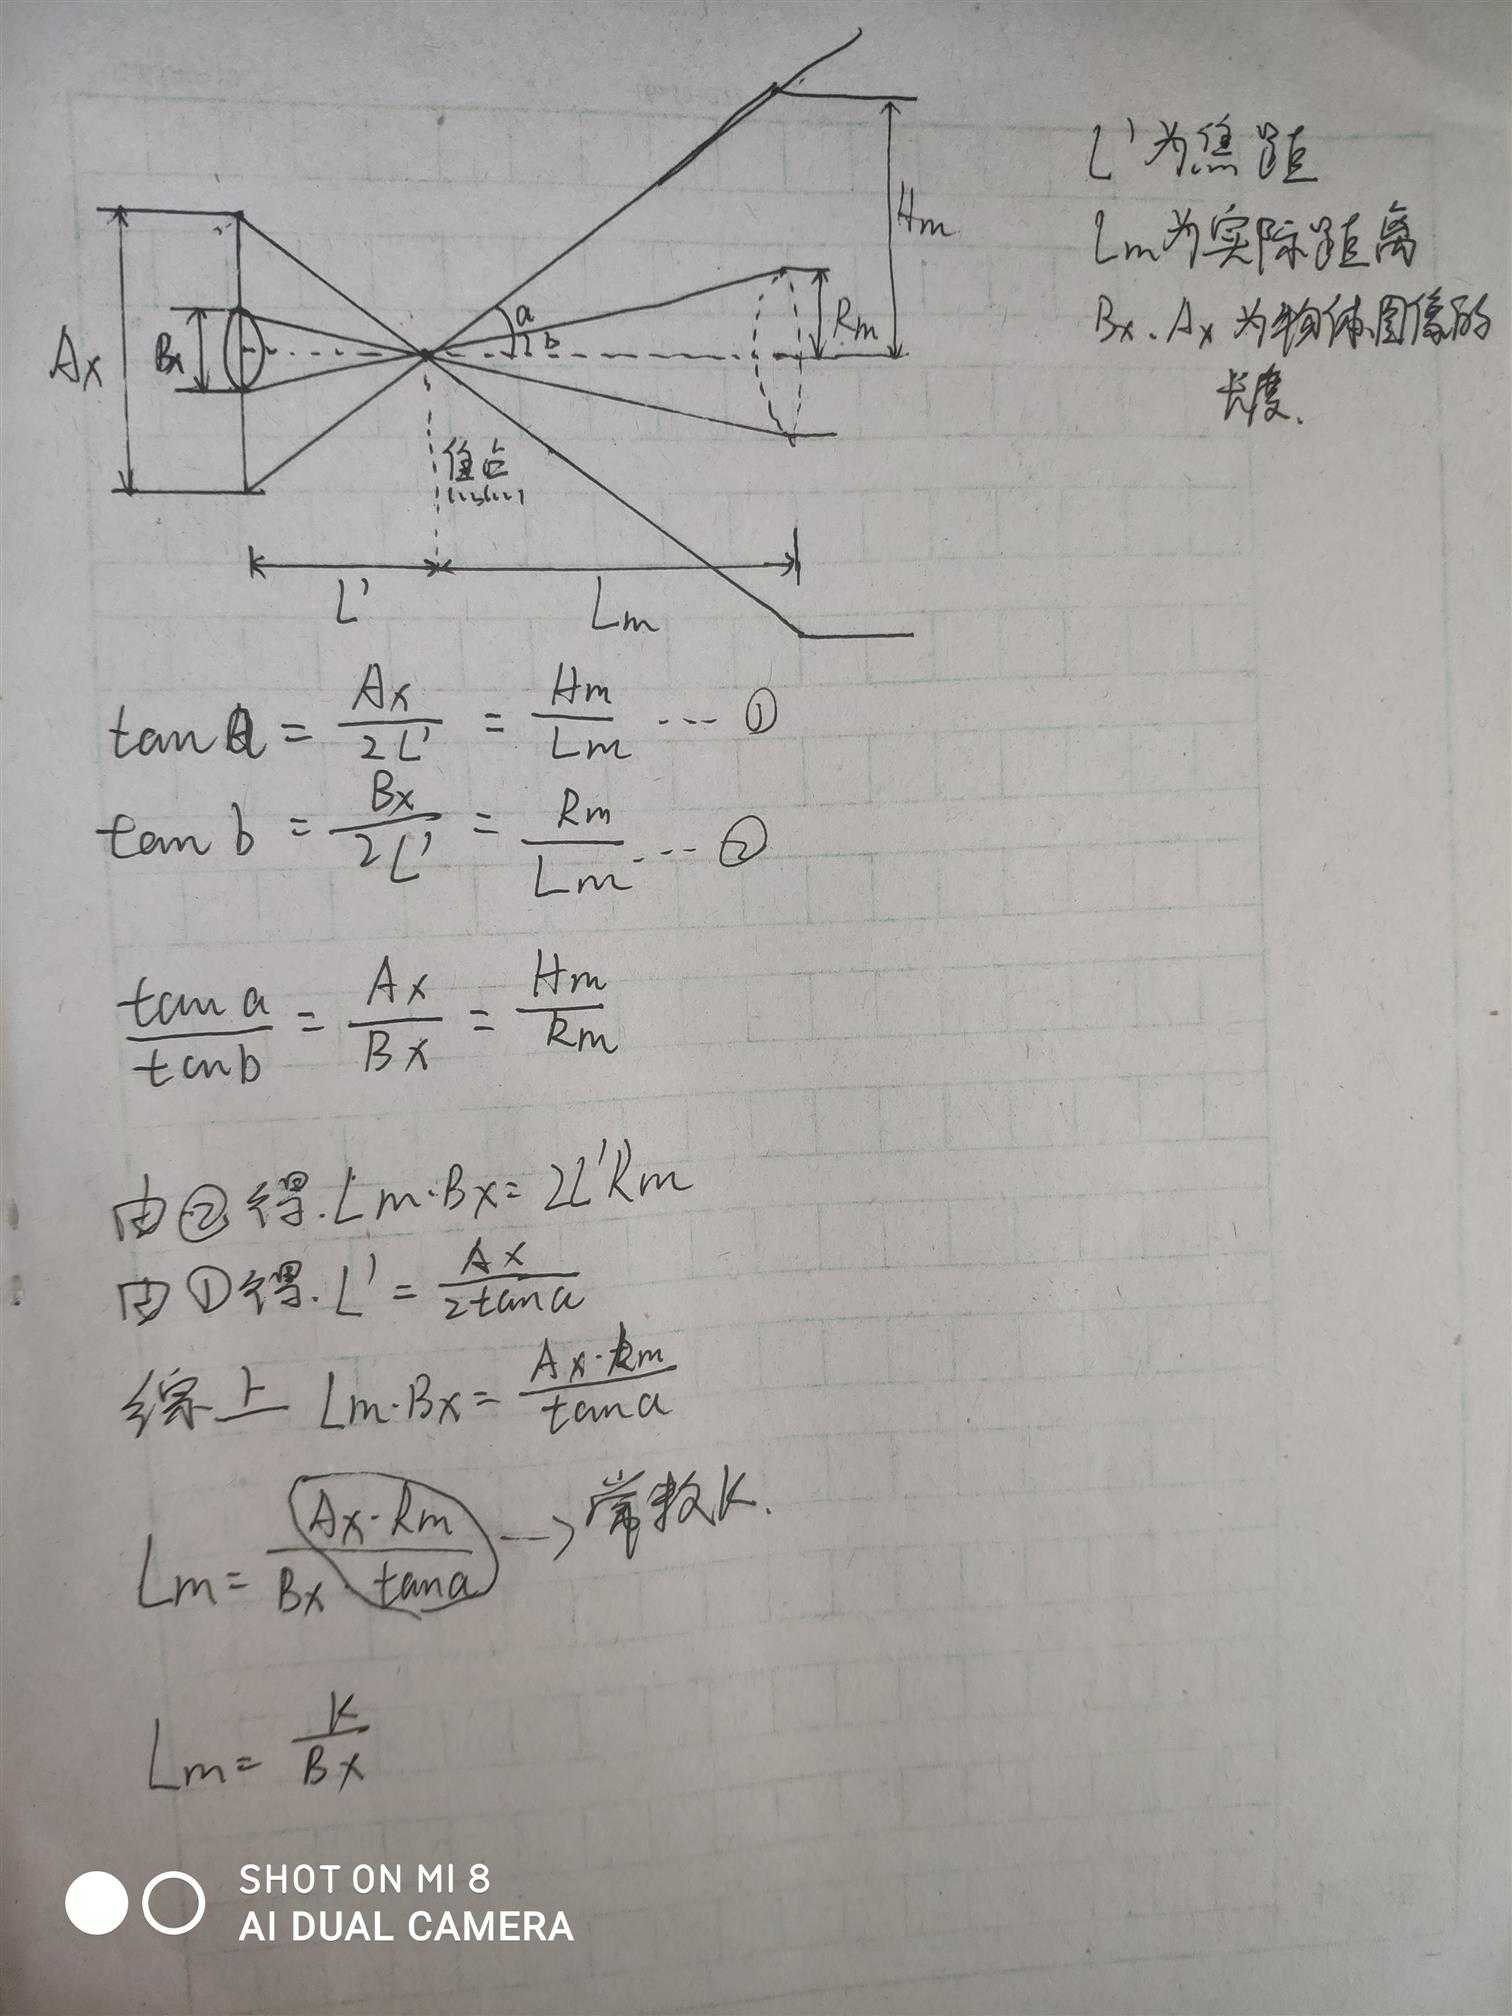 L'为焦距
Lm为实际距离
Bx、Ax为物体图像的
长度.
Hm
Ax
Bx
a
b
Rm
焦点
L'
Lm
tan a = Ax/2L' = Hm/Lm ···· ①
tan b = Bx/2L' = Rm/Lm ···· ②
tan a/tan b = Ax/Bx = Hm/Rm
由②得. Lm·Bx = 2L'Rm
由①得. L' = Ax/2tana
综上 Lm·Bx = Ax·Rm/tana
Lm = Ax·Rm/Bx·tana --→ 常数K.
Lm = K/Bx
SHOT ON MI 8
AI DUAL CAMERA